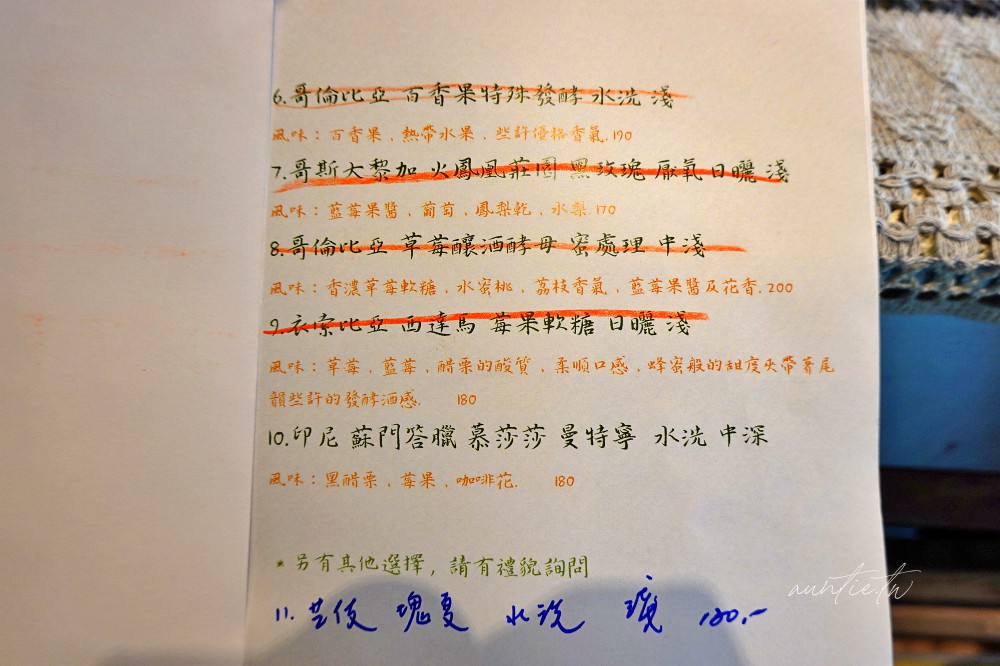 6.哥倫比亞 百香果特殊發酵 水洗 淺
風味：百香果，熱帶水果，些許優格香氣.190
7.哥斯大黎加 火鳳凰莊園 黑玫瑰 厭氧日曬 淺
風味：藍莓果醬，葡萄，鳳梨乾，水梨170
8.哥倫比亞 草莓釀酒酵母 蜜處理 中淺
風味：香濃草莓軟糖，水蜜桃，荔枝香氣，藍莓果醬及花香.200
9.衣索比亞 西達馬 莓果軟糖 日曬 淺
風味：草莓，藍莓，醋栗的酸質，柔順口感，蜂蜜般的甜度夾帶著尾
韻些許的發酵酒感. 180
10.印尼 蘇門答臘 慕莎莎 曼特寧 水洗 中深
風味：黑醋栗，莓果，咖啡花. 180
*另有其他選擇，請有禮貌詢問
11. 藝伎 瑰夏 水洗 180.-
auntie.tw